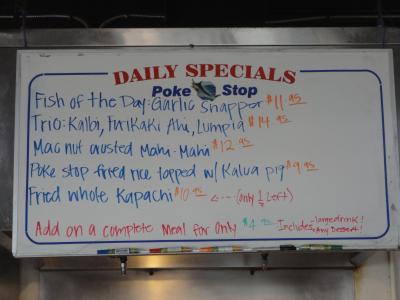 DAILY SPECIALS
Poke Stop
Fish of the Day: Garlic Snapper $11.95
Trio: Kalbi, Furikaki Ahi, Lumpia $14.95
Mac nut crusted Mahi-Mahi $12.95
Poke stop fried rice topped w/ Kalua pig $9.95
Fried whole Kapachi $10.95 <--- (only 1/2 Left)
Add on a complete meal for only $4.95 Includes -large drink!
-Any Dessert!